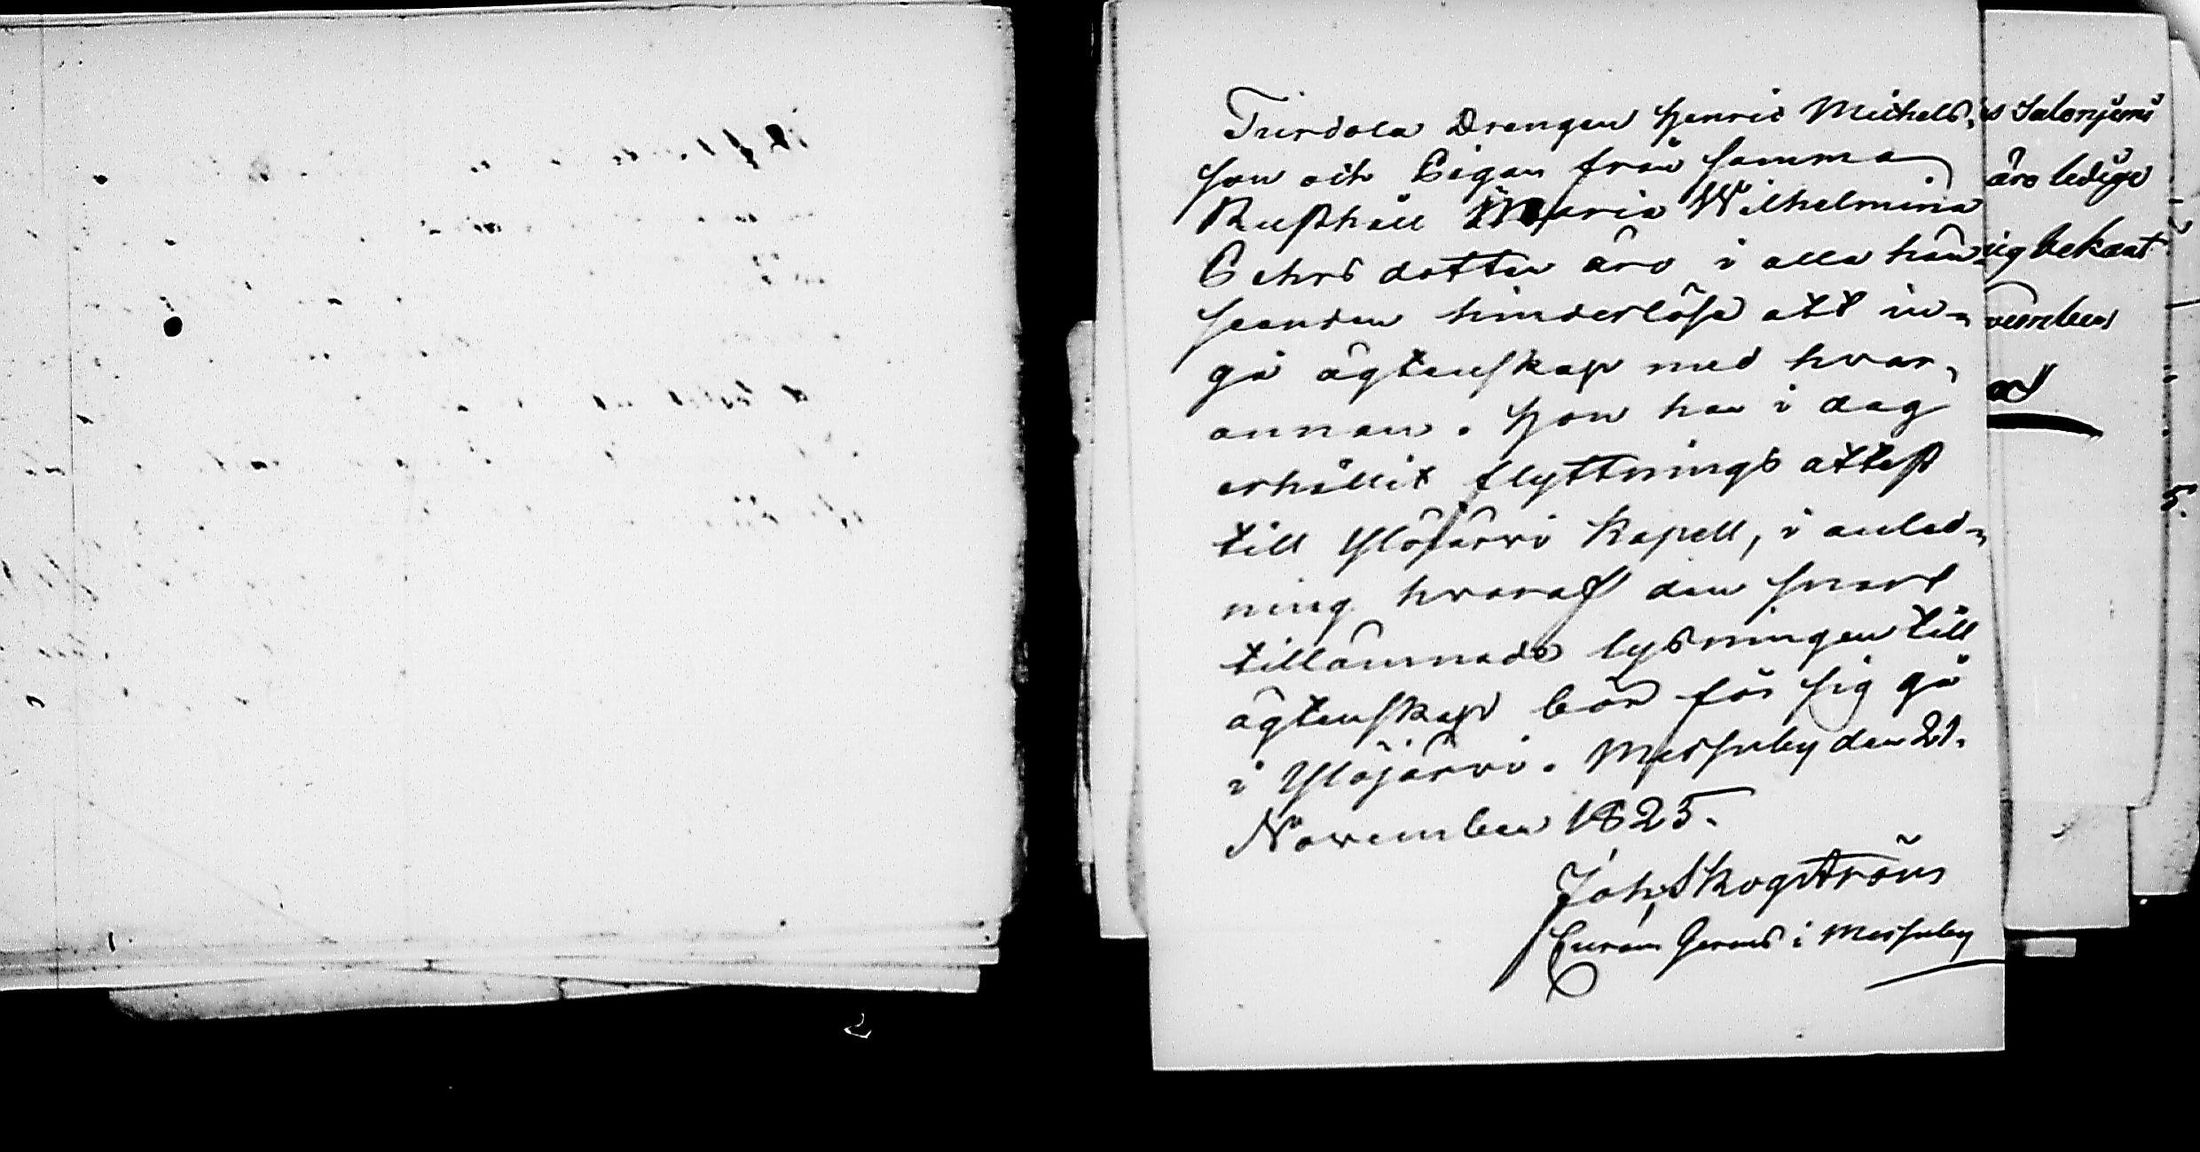 Turdola Drengen Henric Michels-
son och Pigan från samma
Rusthåll Maria Wilhelmina
Pehrsdotter äro i alla hän-
seenden hinderlöse att in-
gå ägtenskap med hvar-
annan. Hon har i dag
erhållit flyttnings attest
till Ylöjärvi Kapell, i anled-
ning hvaraf den snart
tillämnade lysningen till
ägtenskap bör för sig gå
i Ylöjärvi. Messuby den 21.
November 1825.
Joh. Skogström
i Messuby
äro ledige
ig bekant
vember
1.
2
5.